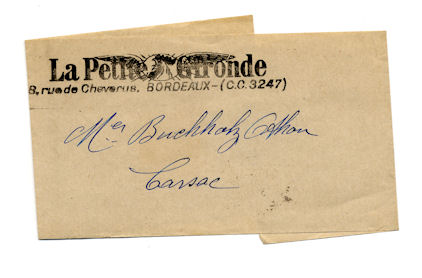 La Petite Gironde
8, rue de Cheverus, BORDEAUX-(C.C.3247)
Mer Buchholz
Carsac